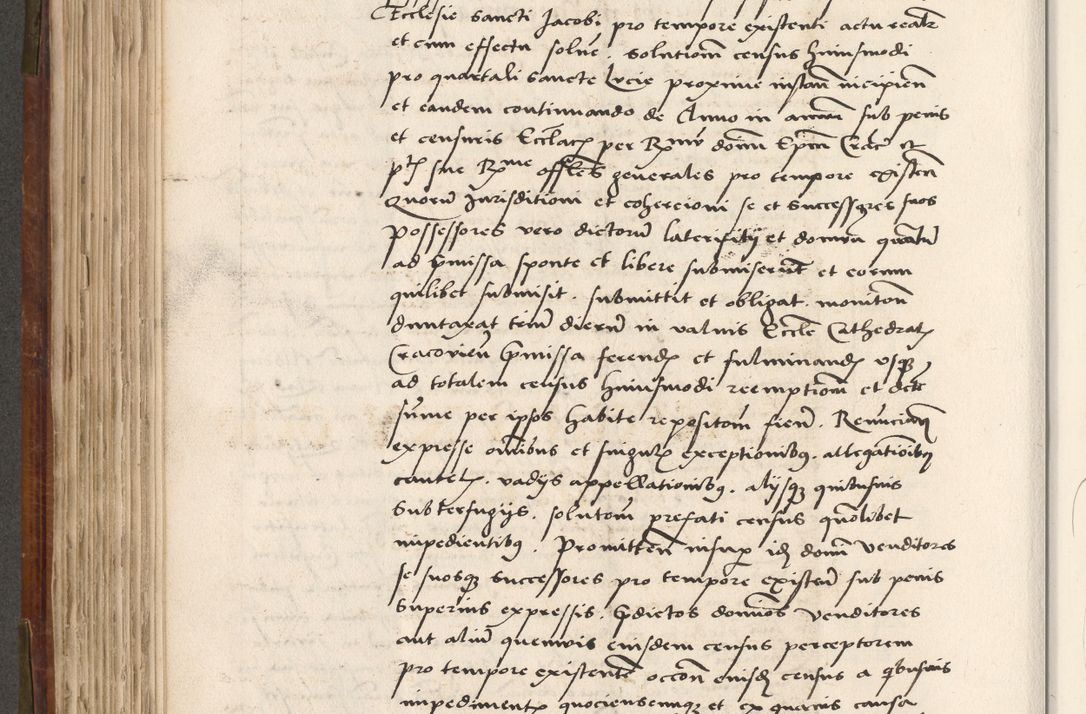 Ecclesie sancti Jacobi pro tempore existenti actu realr
et cum effectu solue. solutionem census huiusmodi
pro quartali sancte Lucie proxime instan incipien
et eandem continuando de Anno in annum sub penis
et censuris Ecclacz per Rmu domin Epum Crac et
ptis sue Rme offles generales pro tempore existen
Quoru Jurisditioni et cohercioni se et successores suos
possessores vero dictoru laterifitij et domus quatu
ad pmissa sponte et libere submiserut et eorum
quilibet submisit. submittit et obligat. moniton
duntaxat triu dieru in valuis Eccle Cathedral
Cracovien pmissa ferend et fulminand usq
ad totalem census huiusmodi reemptionem et dcte
sume per ipsos habite repositom fien. Renuncian
expresse omibus et singulr exceptionibq. allegationibq
cautel. vadijs appellationibq. alijsq quibusuis
subterfugijs. solutom prefati census quolibet
impedientibq. Promitten insup idz domi venditores
se suosq successores pro tempore existen sub penis
superius expressis. pdictos dominos venditores
aut aliu quemvis eiusdem census perceptorem
pro tempore existente occon eiusdz census a qbusuis
impedimentz quocienscunq et ex quacuis causa